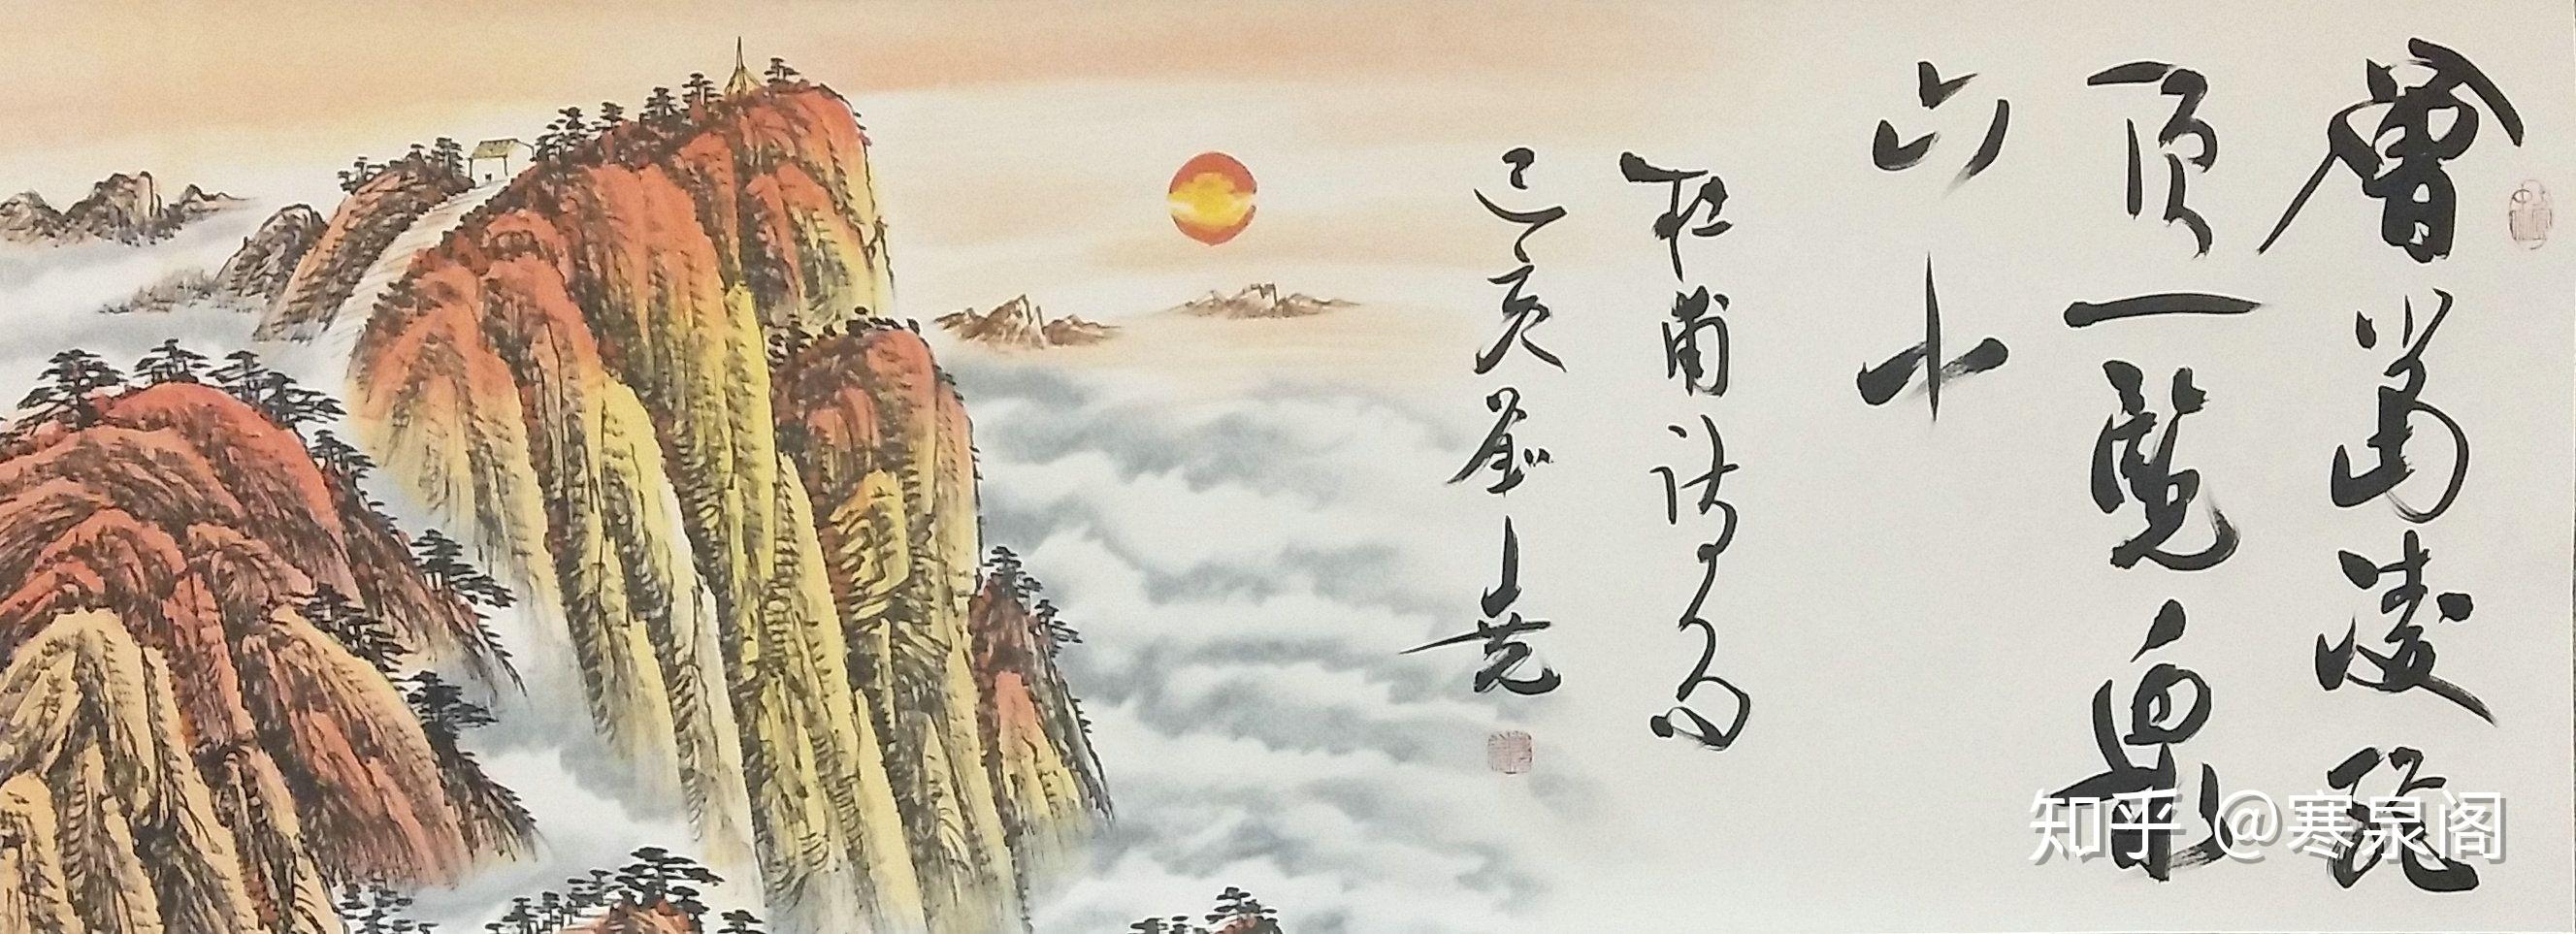 會當凌絕
頂一覽眾
山小
杜甫詩句
己亥
知乎 @寒泉阁